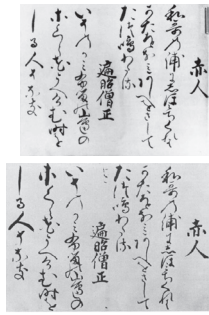 赤人
和哥乃浦に志保みちくれは
かたをなみあしへをさして
たつ鳴わたる
遍昭僧正
いその
山邊の
うへけむ時を
しる人そなき
赤人
和哥乃浦に志保みちくれは
かたをなみあしへをさして
たつ鳴わたる
遍昭僧正
いその
山邊の
うへけむ時を
しる人そなき